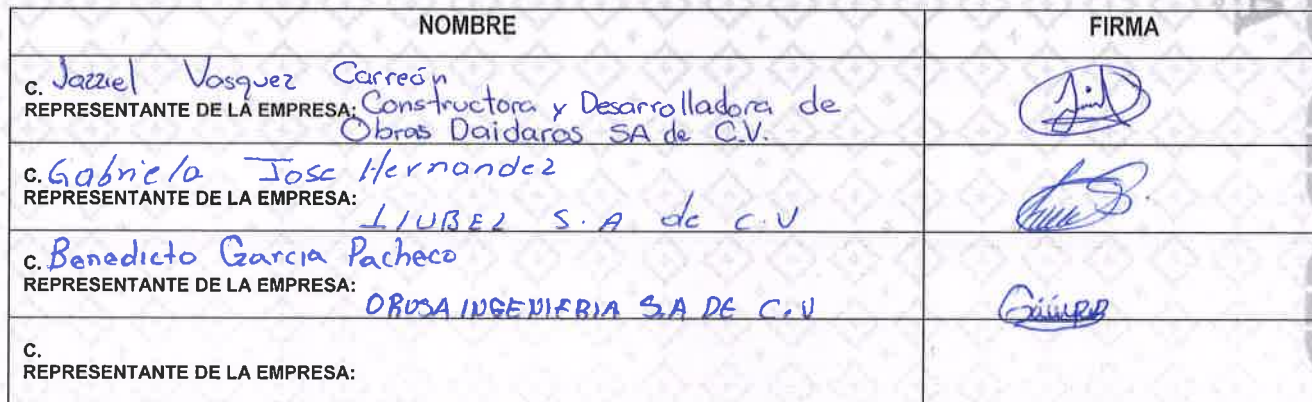 NOMBRE FIRMA
C. Jazziel Vasquez Carreón
REPRESENTANTE DE LA EMPRESA: Constructora y Desarrolladora de
Obras Daidaros SA de C.V.
C. Gabriela Jose Hernandez
REPRESENTANTE DE LA EMPRESA:
LIUBEZ S.A de C.V
C. Benedicto Garcia Pacheco
REPRESENTANTE DE LA EMPRESA:
ORUSA INGENIERIA S.A DE C.V
C.
REPRESENTANTE DE LA EMPRESA: